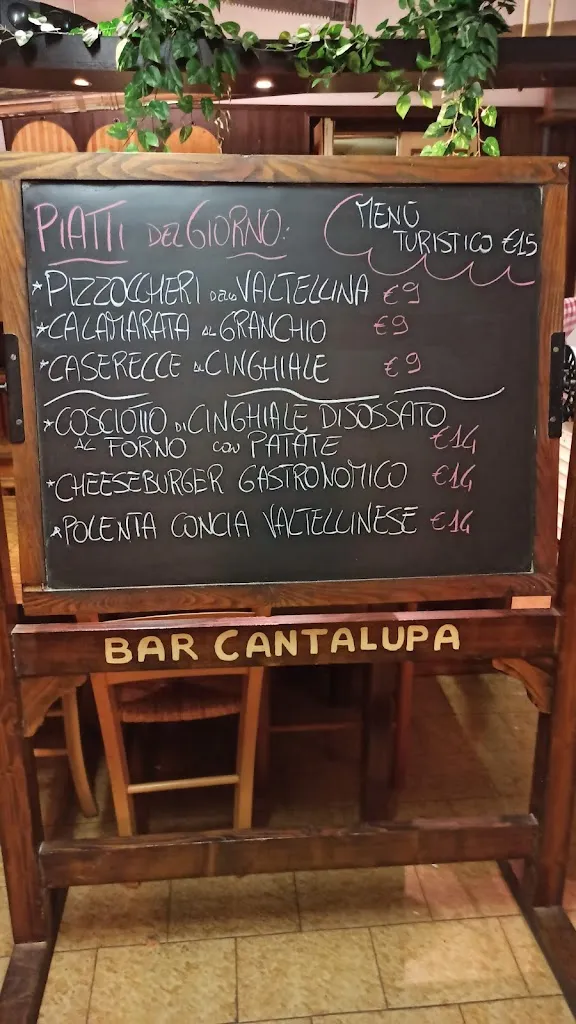 PIATTI DEL GIORNO:
MENÙ
TURISTICO €15
* PIZZOCCHERI DELLA VALTELLINA €9
* CALAMARATA AL GRANCHIO €9
* CASERECCE AL CINGHIALE €9
* COSCIOTTO DI CINGHIALE DISOSSATO
AL FORNO CON PATATE €14
* CHEESEBURGER GASTRONOMICO €14
* POLENTA CONCIA VALTELLINESE €14
BAR CANTALUPA